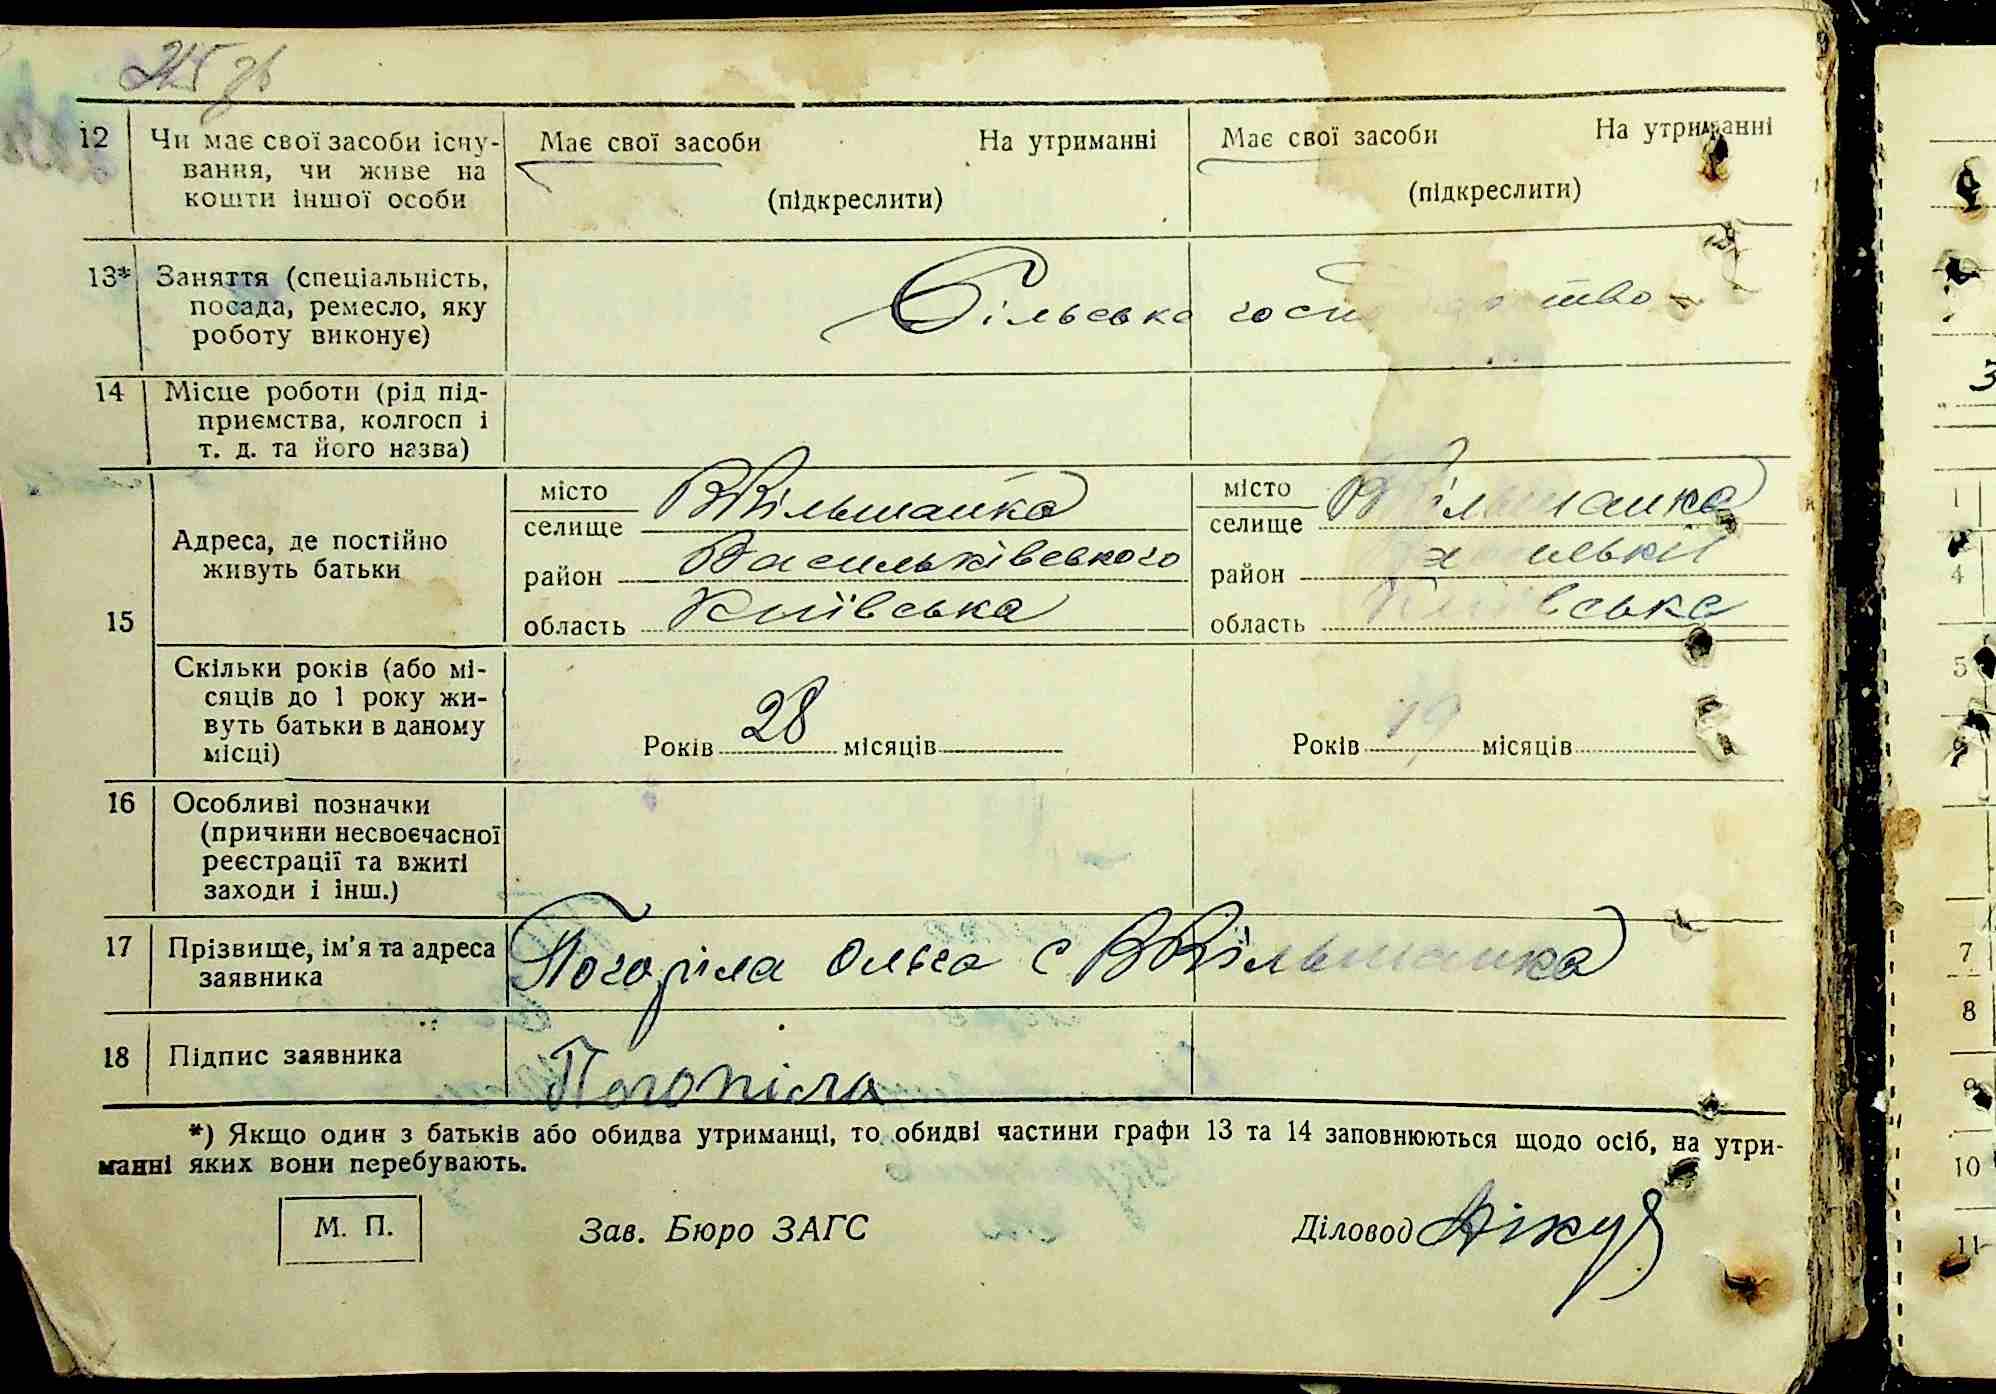 215 зв
12 Чи має свої засоби існу- Має свої засоби На утриманні Має свої засоби На утриманні
вання, чи живе на
кошти іншої особи (підкреслити) (підкреслити)
13* Заняття (спеціальність,
посада, ремесло, яку Сільське господарство
роботу виконує)
14 Місце роботи (рід під-
приємства, колгосп і
т. д. та його назва)
15
Адреса, де постійно
живуть батьки
місто
селище ВВільшанка
район Васильківського
область Київська
місто
селище ВВільшанка
район
область Київська
Скільки років (або мі-
сяців до 1 року жи-
вуть батьки в даному
місці)
Років 28 місяців Років 19 місяців
16 Особливі позначки
(причини несвоєчасної
реєстрації та вжиті
заходи і інш.)
17 Прізвище, ім’я та адреса
заявника Погоріла Ольга с ВВільшанка
18 Підпис заявника Погоріла
*) Якщо один з батьків або обидва утриманці, то обидві частини графи 13 та 14 заповнюються щодо осіб, на утри-
манні яких вони перебувають.
М. П. Зав. Бюро ЗАГС Діловод
3
1
4
5
7
8
9
10
11